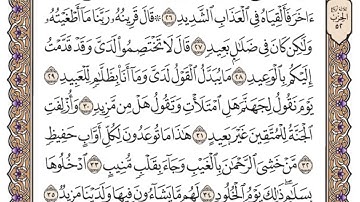 ءَاخَرَ فَأَلْقِيَاهُ فِي ٱلْعَذَابِ ٱلشَّدِيدِ ٢٦ ۞ قَالَ قَرِينُهُۥ رَبَّنَا مَآ أَطْغَيْتُهُۥ
وَلَٰكِن كَانَ فِي ضَلَٰلِۭ بَعِيدٖ ٢٧ قَالَ لَا تَخْتَصِمُوا۟ لَدَيَّ وَقَدْ قَدَّمْتُ
إِلَيْكُم بِٱلْوَعِيدِ ٢٨ مَا يُبَدَّلُ ٱلْقَوْلُ لَدَيَّ وَمَآ أَنَا۠ بِظَلَّٰمٖ لِّلْعَبِيدِ ٢٩
يَوْمَ نَقُولُ لِجَهَنَّمَ هَلِ ٱمْتَلَأْتِ وَتَقُولُ هَلْ مِن مَّزِيدٖ ٣٠ وَأُزْلِفَتِ
ٱلْجَنَّةُ لِلْمُتَّقِينَ غَيْرَ بَعِيدٍ ٣١ هَٰذَا مَا تُوعَدُونَ لِكُلِّ أَوَّابٍ حَفِيظٖ
٣٢ مَّنْ خَشِيَ ٱلرَّحْمَٰنَ بِٱلْغَيْبِ وَجَآءَ بِقَلْبٖ مُّنِيبٍ ٣٣ ٱدْخُلُوهَا
بِسَلَٰمٖۖ ذَٰلِكَ يَوْمُ ٱلْخُلُودِ ٣٤ لَهُم مَّا يَشَآءُونَ فِيهَا وَلَدَيْنَا مَزِيدٞ ٣٥
الحزب
٥٢